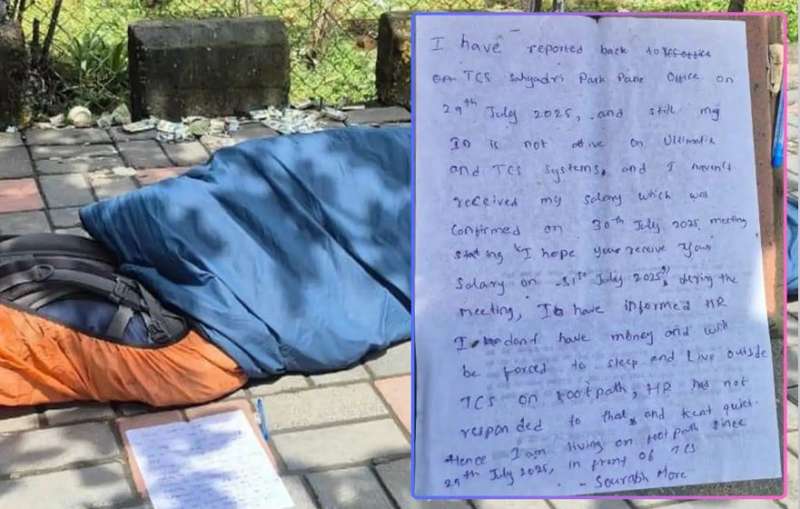 I have reported back to
on TCS Sahyadri Park Pune Office on
29th July 2025, and still my
ID is not active on Ultimatix
and TCS systems, and I haven't
received my salary which was
confirmed on 30th July 2025, meeting
stating "I hope you receive your
salary on 31st July 2025", during the
meeting, I have informed HR
I dont have money and will
be forced to sleep and live outside
TCS on footpath, HR has not
responded to that, and kept quiet.
Hence I am living on footpath since
29th July 2025, in front of TCS
- Sourabh More